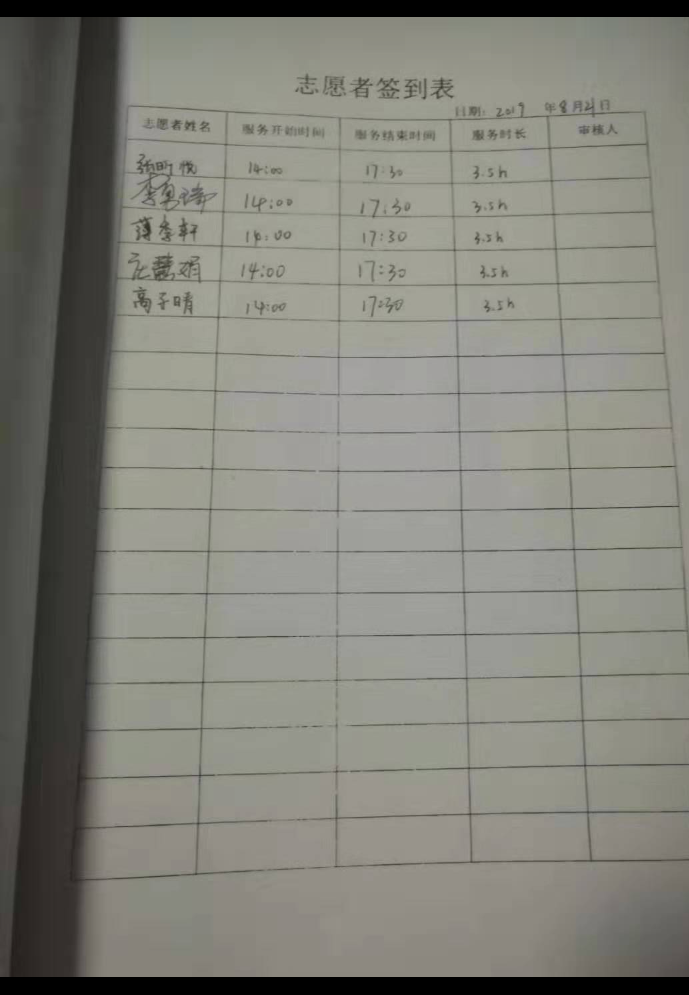 志愿者签到表
日期: 2019 年8月21日
志愿者姓名 服务开始时间 服务结束时间 服务时长 审核人
悦 14:00 17:30 3.5h
李 14:00 17:30 3.5h
薄 轩 14:00 17:30 3.5h
娟 14:00 17:30 3.5h
高子晴 14:00 17:30 3.5h